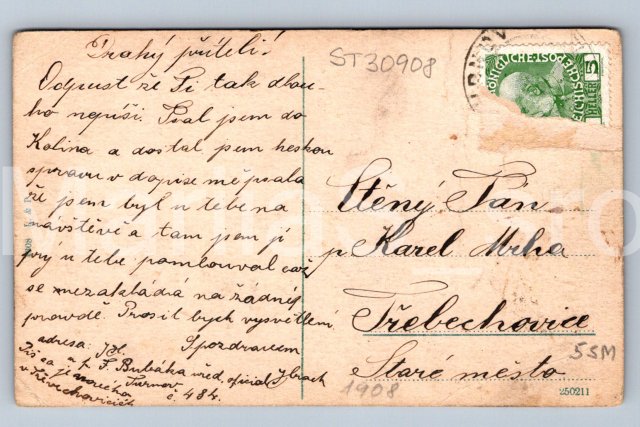 Drahý příteli!
Odpust že Ti tak dlou-
ho nepíši. Psal jsem do
Kolína a dostal jsem heskou
zprávu v dopise mě psala
že jsem byl u tebe na
návštěvě a tam jsem jí
prý u tebe pomlouval což
se nezakládá na žádný
pravdě. Prosil bych vysvětlení
S pozdravem
adresa: J.
u p. F. Bubáka úřed. oficiál
Turnov
č. 484.
ST30908
5
HELLER
Ctěný Pán
p Karel Mrha
Třebechovice
Staré město
5SM
1908
250211